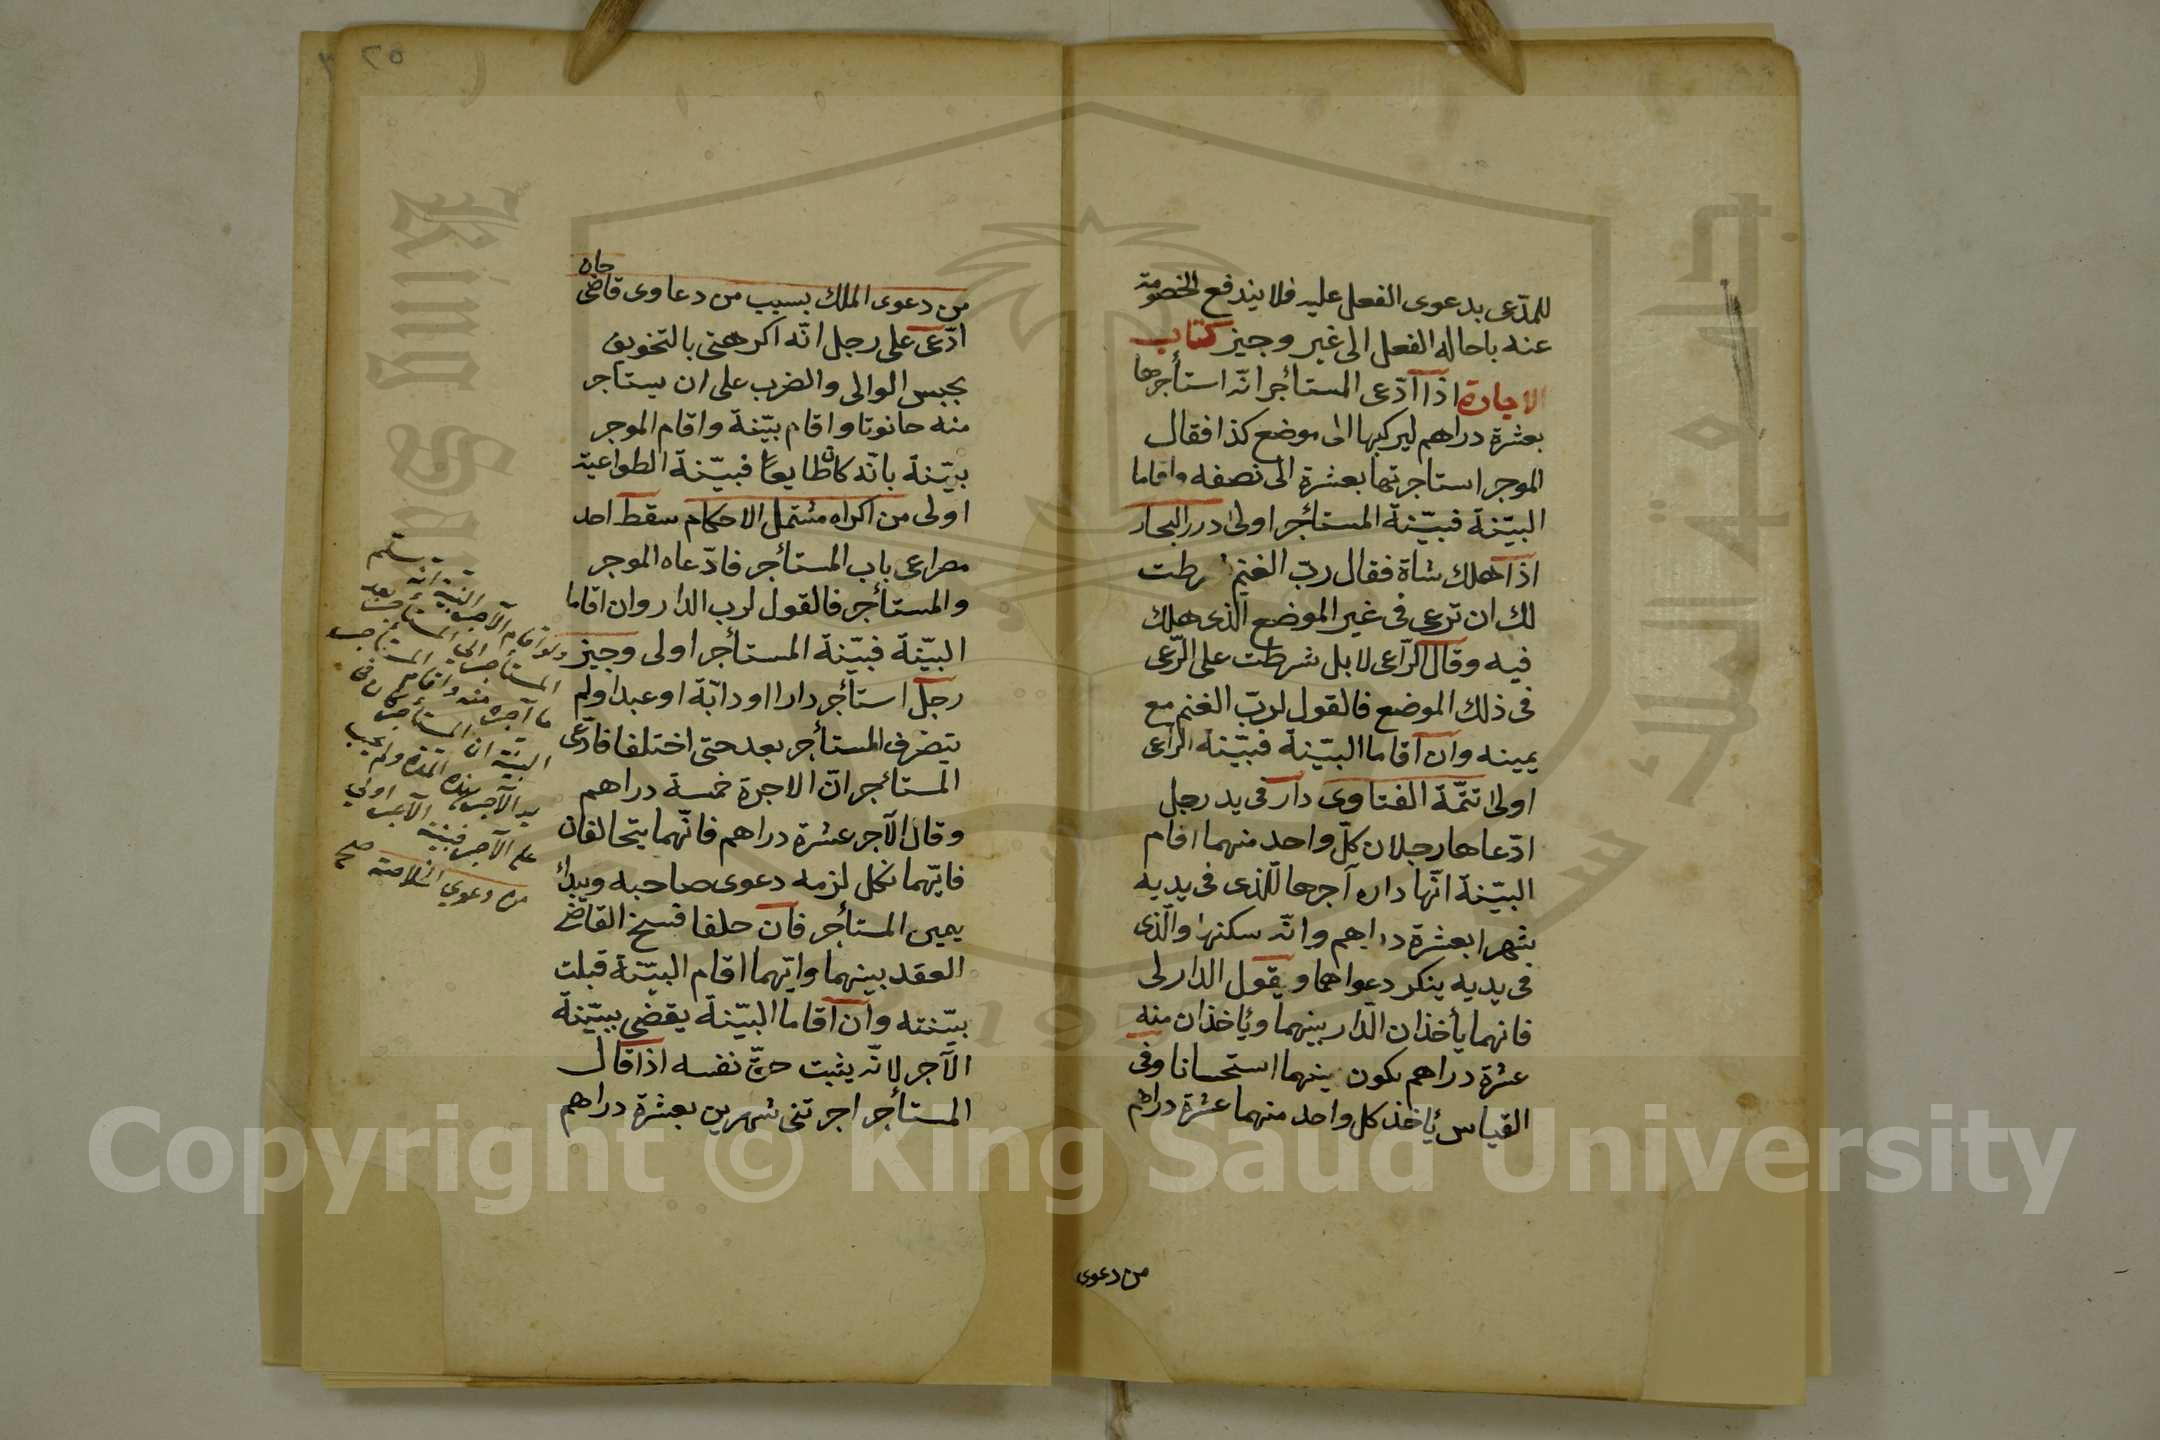 للمدّعى بدعوى الفعل عليه فلا يندفع الخصومة
عنه باحاله الفعل الى غير وجيز كتاب
الاجارة اذا ادّعى المستأجر انّه استأجرها
بعشرة دراهم ليركبها الى موضع كذا فقال
الموجر استاجرتها بعشرة الى نصفه واقاما
البيّنة فبيّنة المستأجر اولى درر البحار
اذا هلك شاة فقال ربّ الغنم شرطت
لك ان ترعى فى غير الموضع الّذى هلك
فيه وقال الرّاعى لا بل شرطت على الرّعى
فى ذلك الموضع فالقول لربّ الغنم مع
يمينه وان اقاما البيّنة فبيّنة الراعى
اولى تتمّة الفتاوى دار فى يد رجل
ادّعاها رجلان كلّ واحد منهما اقام
البيّنة انّها داره آجرها للّذى فى يديه
شهرا بعشرة دراهم وانّه سكنها والّذى
فى يديه ينكر دعواهما ويقول الدار لى
فانهما يأخذان الدّار بينهما ويأخذان منه
عشرة دراهم يكون بينهما استحسانا وفى
القياس يأخذ كل واحد منهما عشرة دراهم
من دعوى
من دعوى الملك بسبب من دعاوى قاضى
خان
ادّعى على رجل انّه اكرهنى بالتخويف
بحبس الوالى والضرب على ان يستاجر
منه حانوتا واقام بيّنة واقام الموجر
بيّنة بانّه كان طايعا فبيّنة الطواعية
اولى من اكراه مشتمل الاحكام سقط احد
مصراعى باب المستأجر فادّعاه الموجر
والمستأجر فالقول لرب الدار وان اقاما
البيّنة فبيّنة المستأجر اولى وجيز
رجل استأجر دارا او دابّة او عبدا ولم
يتصرف المستأجر بعد حتى اختلفا فادّعى
المستأجر انّ الاجرة خمسة دراهم
وقال الآجر عشرة دراهم فانّهما يتحالفان
فايّهما نكل لزمه دعوى صاحبه ويبدأ
بيمين المستأجر فان حلفا فسخ القاضى
العقد بينهما وايّهما اقام البيّنة قبلت
بيّنته وان اقاما البيّنة يقضى ببيّنة
الآجر لانّه يثبت حقّ نفسه اذا قال
المستأجر اجرتنى شهرين بعشرة دراهم
ولو اقام الآجر البينة انه
المستأجر الى المستأجر بعد
ما آجره منه واقام المستأجر
البينة ان المستأجر كان فى
يد الآجر هذه المدة ولم يجب
على الآجر فبينة الآجر اولى
من دعوى الخلاصة صح
٢٥
King Saud
جامعة الملك سعود
Copyright © King Saud University